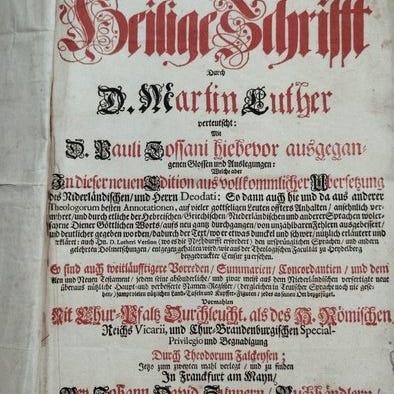 Heilige Schrifft
Durch
D. Martin Luther
verteutscht:
Mit
D. Pauli Tossani hiebevor ausgegan-
genen Glossen und Auslegungen:
Welche aber
In dieser neuen Edition aus vollkommlicher Übersetzung
des Niderländischen/ und Herrn Deodati: So dann auch hie und da aus anderer
Theologorum besten Annotationen, auf vieler gottseligen Leuten offters Anhalten/ ansehnlich ver-
mehret/ und durch etliche der Hebreischen/ Griechischen/ Niderländischen und anderer Sprachen woler-
fahrne Diener Göttlichen Worts/ aufs neu gantz durchgangen/ von unzahlbaren Fehlern ausgebessert/
und deutlicher gegeben worden/ dadurch der Text/ wo er etwas dunckel und schwer/ nützlich erläutert und
erkläret: auch Hn. D. Lutheri Version (wo es die Nothdurfft erfordert) den ursprünglichen Sprachen/ und andern
gelehrten Dolmetschungen/ entgegen gehalten wird/ wie aus der Theologischen Facultät zu Heydelberg
vorgedruckter Censur zu ersehen.
Es sind auch weitläufftigere Vorreden/ Summarien/ Concordantien/ und dem
Alten und Neuen Testament/ jedem seine absonderliche/ und zwar meist aus dem Niderländischen verfertigte neue
überaus nützliche Haupt- und verbesserte Namen-Register/ (dergleichen in Teutscher Sprach noch nie gese-
hen/) sampt vielen nützlichen Land-Tafeln und Kupffer-Figuren/ jedes an seinen Ort beygefüget.
Vormahlen
Mit Chur-Pfaltz Durchleucht. als des H. Römischen
Reichs Vicarii, und Chur-Brandenburgischen Special-
Privilegio und Begnadigung
Durch Theodorum Falckeysen;
Jetzo zum zweyten mahl verlegt/ und zu finden
In Franckfurt am Mayn/
Bey Johann David Zunnern/ Buchhändlern/